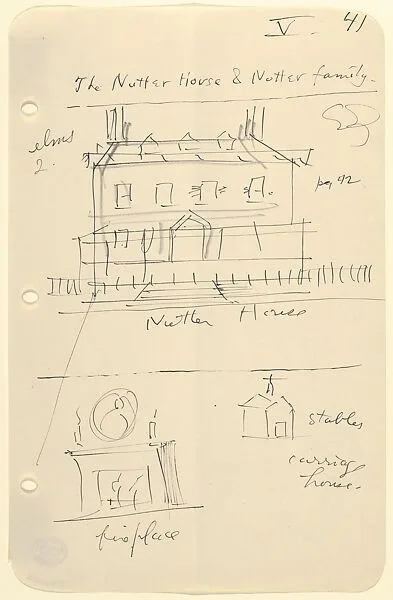 V. 41
The Nutter House & Nutter family.
elms
2.
pg 42
Nutter House
stables
carriig
house.
fireplace